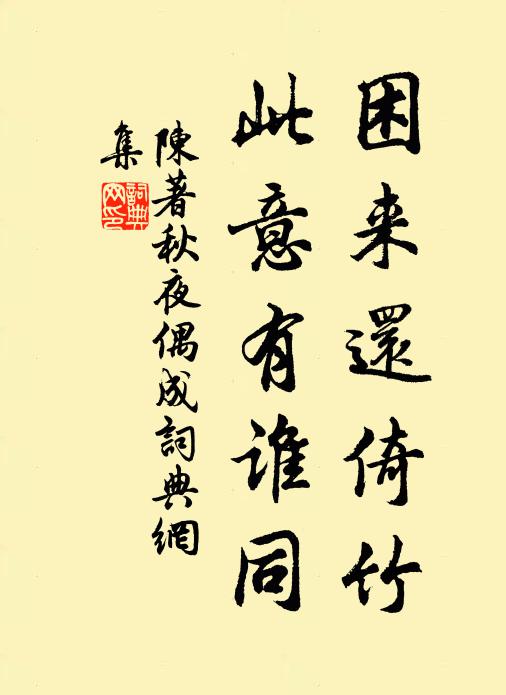 困来還倚竹
此意有誰同
陳著秋夜偶成詞典網
集
詞典網印